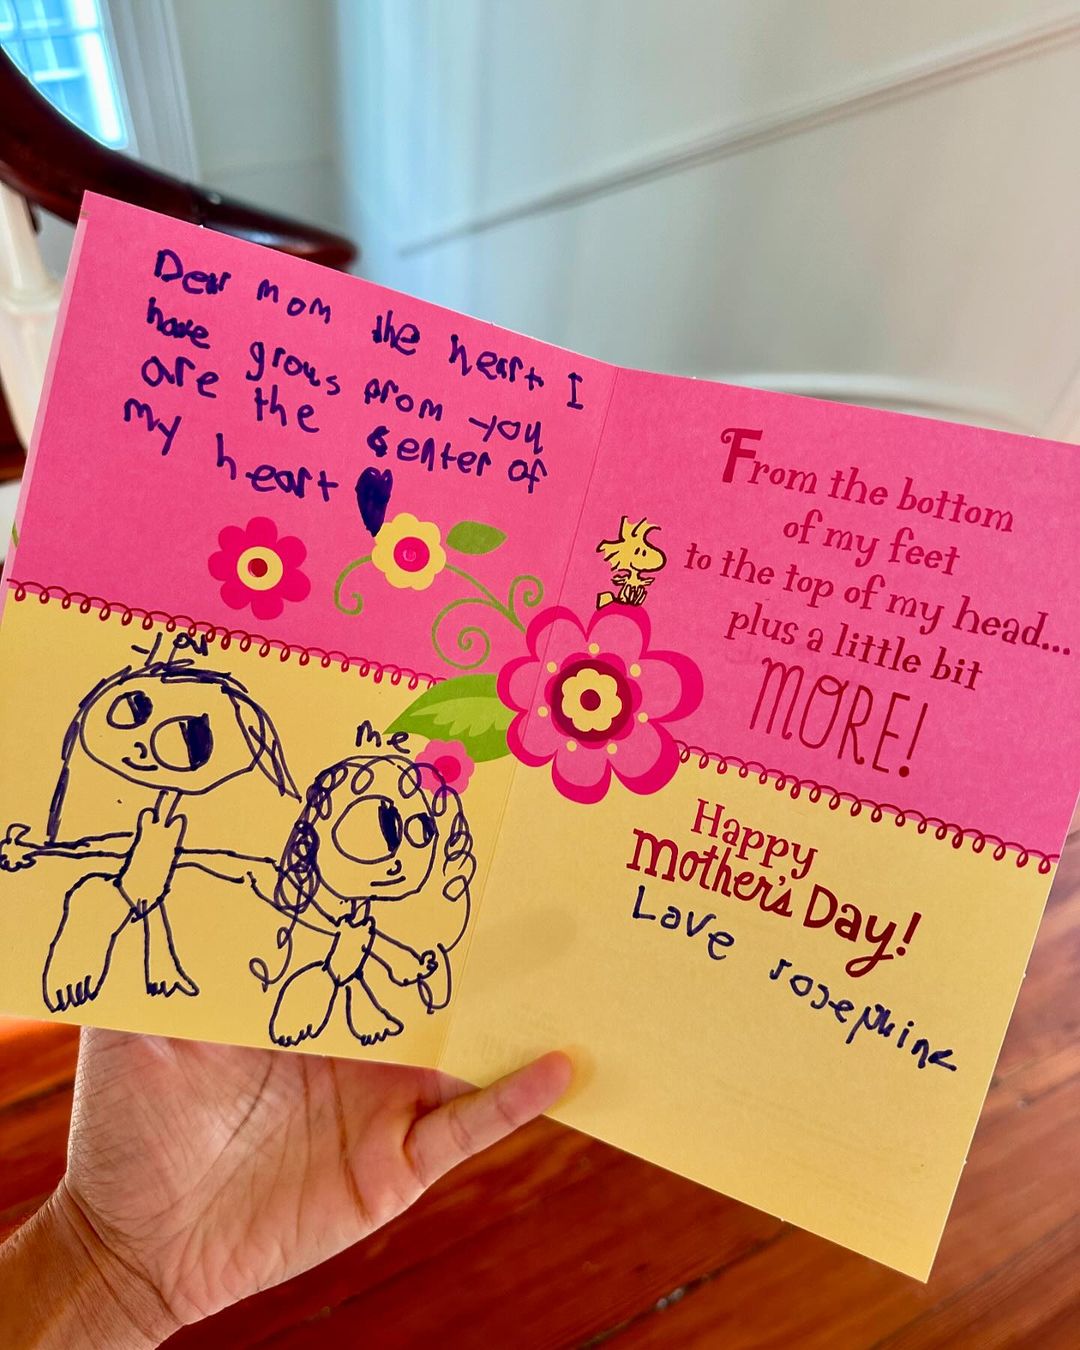 Dear mom the heart I
have grous prom you
are the center of
my heart
you
me
From the bottom
of my feet
to the top of my head...
plus a little bit
MORE!
Happy
Mother's Day!
Lave rosephine